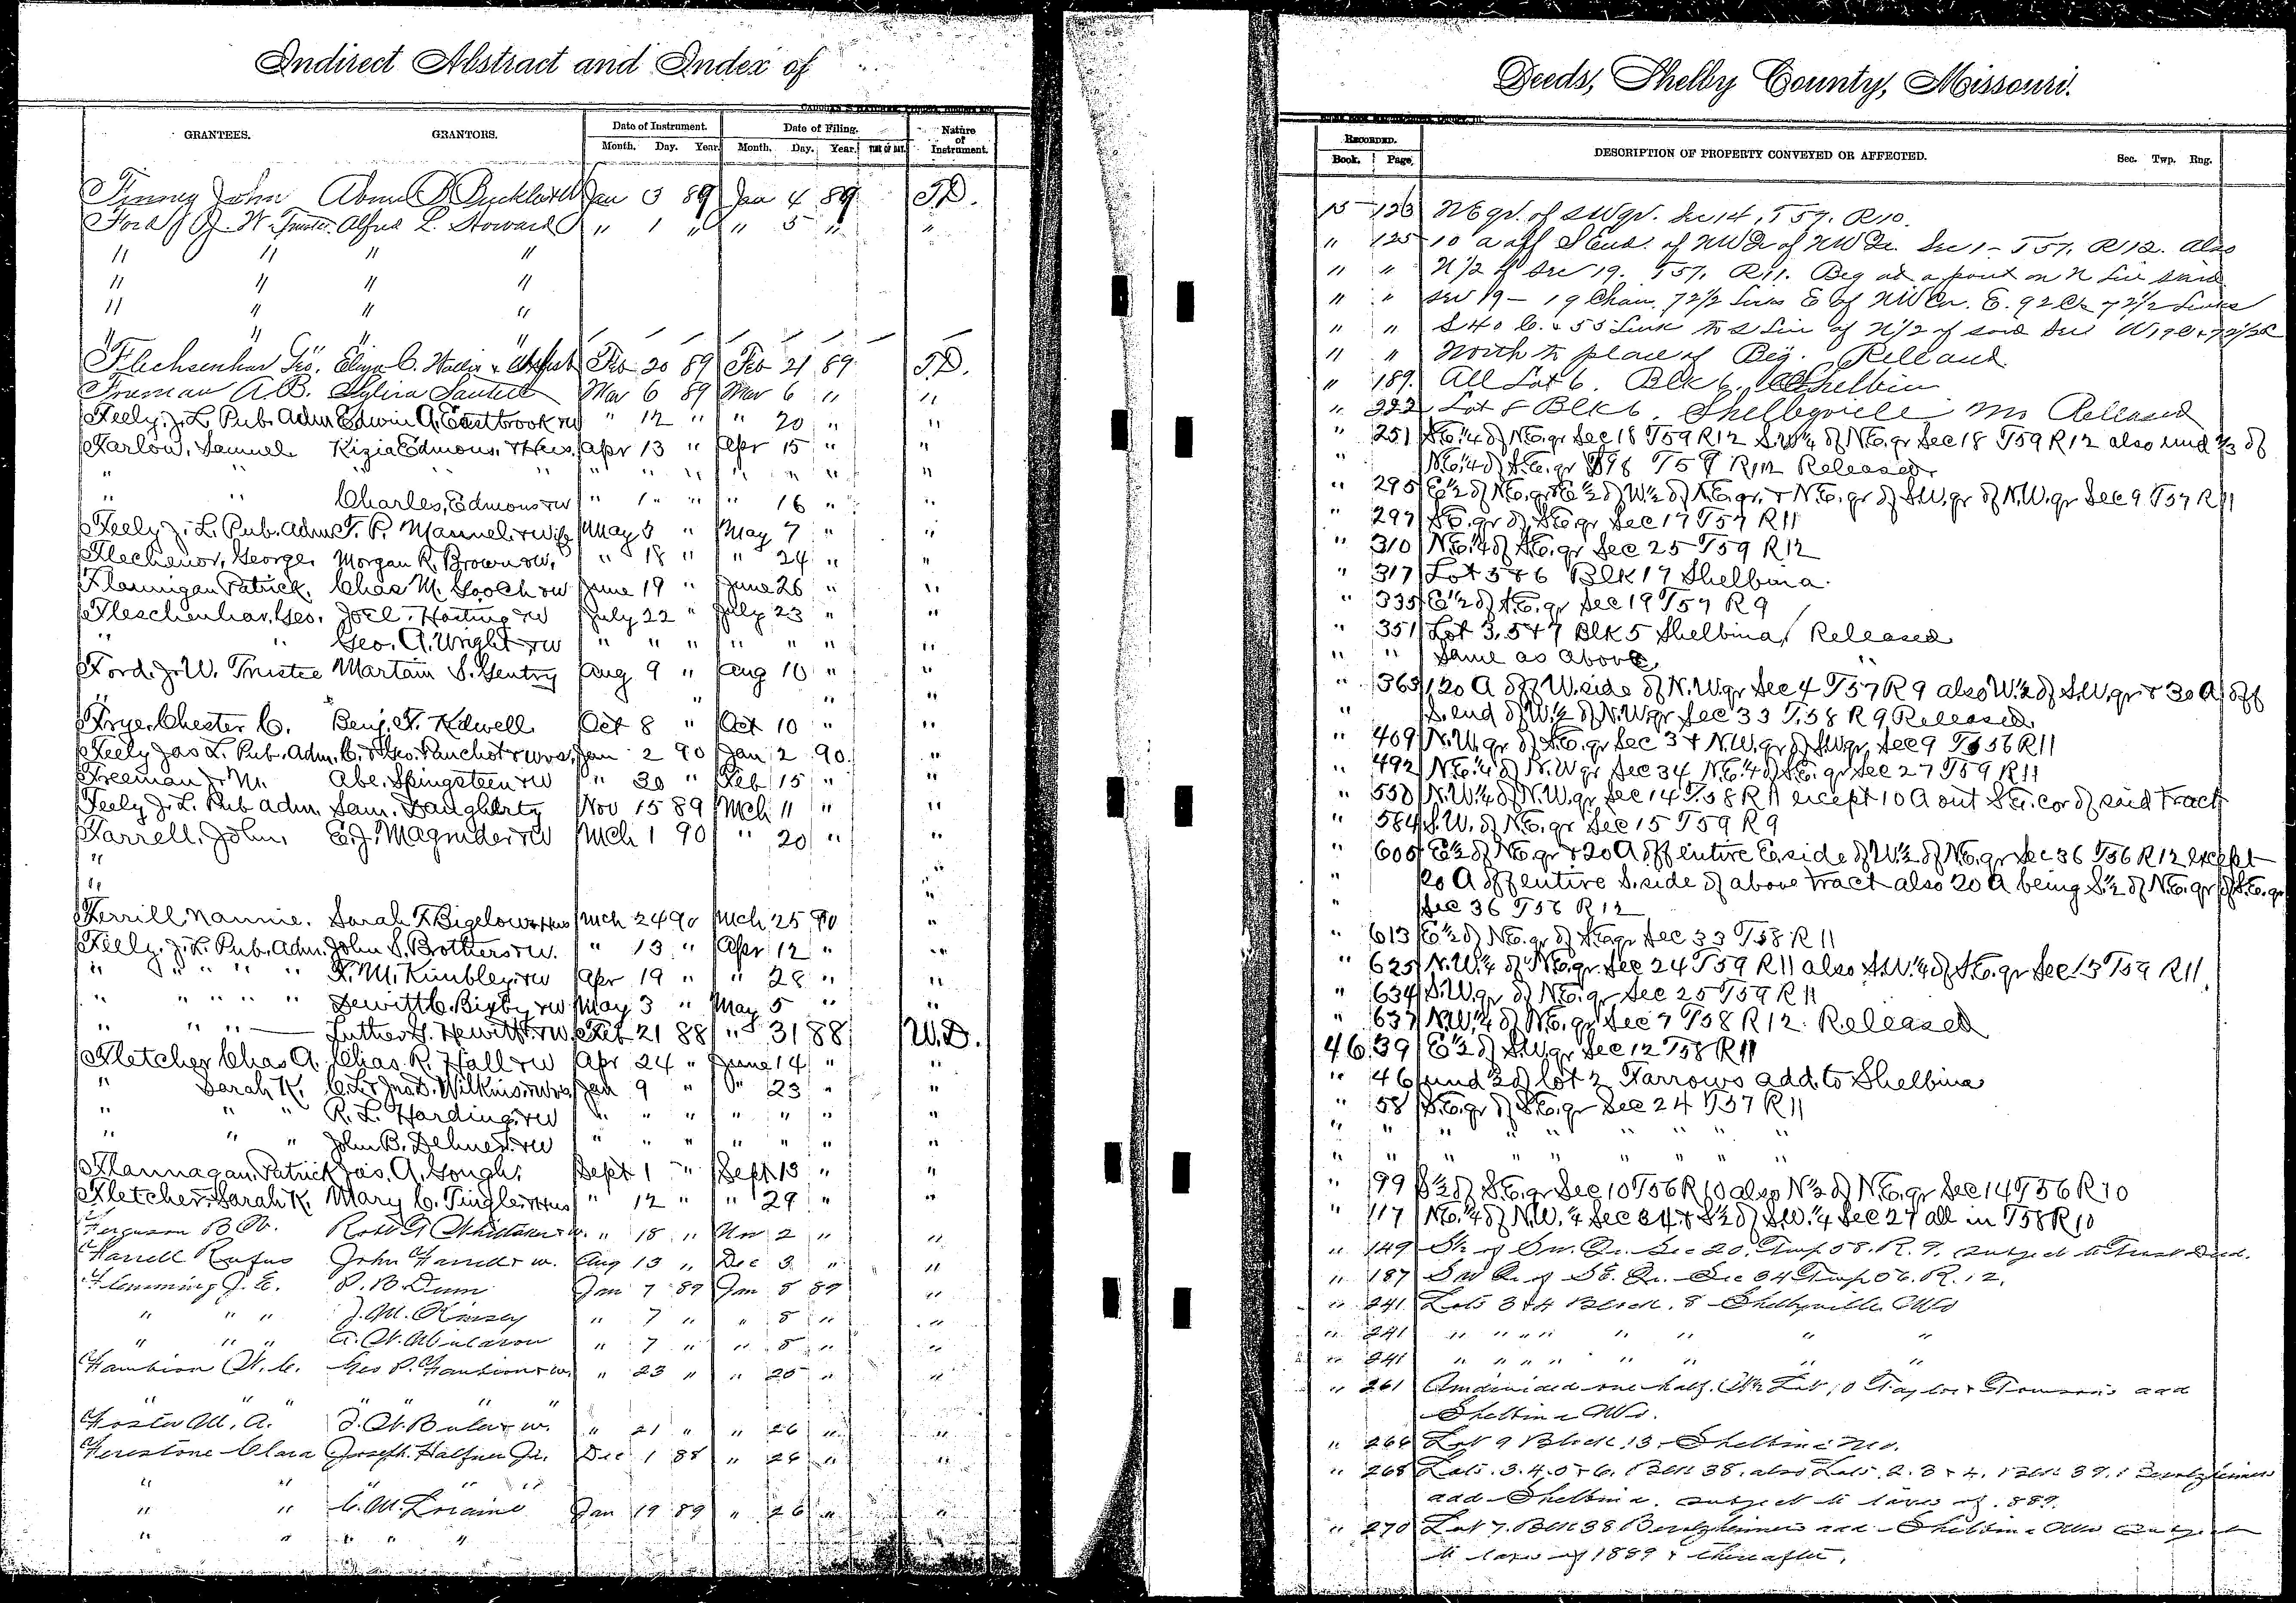 Indirect Abstract and Index of
GRANTEES. GRANTORS. Date of Instrument. Date of Filing. Nature of Instrument.
Month. Day. Year. Month. Day. Year. TIME OF DAY.
Finney John Abner B. Jan 3 89 Jan 4 89 T.D.
Ford J. W. Trustee Alfred L. Howard " 1 " " 5 " "
" " " "
" " " "
" " " "
" " " "
Flechsenhar Geo. Eliza C. Feb 20 89 Feb 21 89 T.D.
Freeman A.B. Mar 6 89 Mar 6 " "
Feely, J. L. Pub. Adm Edwin A. Eastbrook & w " 12 " " 20 " "
Farlow, Samuel Kizia Edmons, & Hus. Apr 13 " Apr 15 " "
" " " " " " " " " "
" " Charles, Edmons & w " 1 " " 16 " "
Feely J. L. Pub. Adm T. P. Mannel & wife May 3 " May 7 " "
Flechenor, George Morgan R. Brown & w. " 18 " " 24 " "
Flannigan Patrick. Chas M. Gooch & w June 19 " June 26 " "
Fleschenhar, Geo. Joel. Hasting & w July 22 " July 23 " "
" " Geo. A. Wright & w " " " " " " "
Ford. J. W. Trustee Martain S. Gentry Aug 9 " Aug 10 " "
" " "
Frye, Chester C. Benj. F. Kidwell Oct 8 " Oct 10 " "
Feely Jas L. Pub. Adm. C. & Geo. Panchot & wvs. Jan 2 90 Jan 2 90. "
Freeman J. M. Abe. Spingsteen & w " 30 " Feb 15 " "
Feely J. L. Pub adm. Sam. Daugherty Nov 15 89 Mch 11 " "
Farrell. John. E. J. Magruder & w Mch 1 90 " 20 " "
" "
" "
Ferrill Nannie. Sarah F. Bigelow & Hus Mch 24 90 Mch 25 90 "
Feely. J. L. Pub. Adm. John S. Brothers & w. " 13 " Apr 12 " "
" " " " F. M. Kimbley & w Apr 19 " " 28 " "
" " " " " Dewitt C. Bixby & w May 3 " May 5 " "
" " " Luther H. Hewitt & w. Feb 21 88 " 31 88 W.D.
Fletcher Chas A. Chas. R. Hall & w Apr 24 " June 14 " "
" Sarah K. C. L. & Jno. D. Wilkins & wvs Jan 9 " " 23 " "
" " " R. L. Harding & w " " " " " " "
" " " John B. Dehner & w " " " " " " "
Flannagan, Patrick Jas. A. Gough. Sept 1 " Sept 13 " "
Fletcher, Sarah K. Mary C. Tingle & Hus " 12 " " 29 " "
Ferguson B. Robt G Whittaker & w. " 18 " Nov 2 " "
Farrell Rufus John Farrell & w. Aug 13 " Dec 3 " "
Flemming J. E. P. B. Dunn Jan 7 89 Jan 8 89 "
" " " J. M. Kinsey " 7 " " 8 " "
" " " " 7 " " 8 " "
W. C. Geo P. & w. " 23 " " 25 " "
" " " " " " "
Foster M. A. & w. " 21 " " 26 " "
Firestone Clara Joseph Halfner Jr. Dec 1 88 " 26 " "
" " " " "
" " C. M. Loraine Jan 19 89 " 26 " "
" " " " "
Deeds, Shelby County, Missouri.
RECORDED. DESCRIPTION OF PROPERTY CONVEYED OR AFFECTED. Sec. Twp. Rng.
Book. Page.
15 123 NE qr. of SW qr. Sec 14, T 57. R 10.
" 125 10 a off S End. of NW Qr of NW Qr. Sec 1 - T 57, R 12. Also
" " N 1/2 of Sec 19. T 57, R 11. Beg at a point on N Line said
" " Sec 19 - 19 Chain 72 1/2 Links E of NW Cor. E. 92 Ch 72 1/2 Links
" " S 40 C. & 55 Link to S Line of N 1/2 of said Sec
" " North to place of Beg. Released
" 189. All Lot 6. Blk 6. Shelbina
" 222 Lot 8 Blk 6. Shelbyville Mo Released
" 251 S.E. 1/4 of N.E. qr Sec 18 T59 R12 S.W. 1/4 of N.E. qr Sec 18 T59 R12 also und 2/3 of
" N.E. 1/4 of S.E. qr T59 R12 Released
" 295 E 1/2 of N.E. qr, & E 1/2 of W 1/2 of N.E. qr. & N.E. qr of S.W. qr of N.W. qr Sec 9 T57 R11
" 297 S.E. qr of S.E. qr Sec 17 T57 R11
" 310 N.E. 1/4 of S.E. qr Sec 25 T59 R12
" 317 Lot 5 & 6 Blk 17 Shelbina.
" 335 E 1/2 of S.E. qr Sec 19 T57 R9
" 351 Lot 3, 5 & 7 Blk 5 Shelbina, Released
" " Same as above "
" 363 120 A off W. side of N.W. qr Sec 4 T57 R9 also W 1/2 of S.W. qr & 30 A off
" S. end of W 1/2 of N.W. qr Sec 33 T.58 R9 Released
" 409 N.W. qr of S.E. qr Sec 3 & N.W. qr of S.W. qr. Sec 9 T56 R11
" 492 N.E. 1/4 of N.W. qr Sec 34 N.E. 1/4 of S.E. qr Sec 27 T59 R11
" 550 N.W. 1/4 of N.W. qr Sec 14 T.58 R11 except 10 A out S.E. cor of said tract
" 584 S.W. of N.E. qr Sec 15 T59 R9
" 605 E 1/2 of N.E. qr & 20 A off entire E. side of W 1/2 of N.E. qr Sec 36 T56 R12 except
" 20 A off entire S. side of above tract also 20 A being S 1/2 of N.E. qr of S.E. qr
" Sec 36 T56 R12
" 613 E 1/2 of N.E. qr of S.E. qr Sec 33 T58 R11
" 625 N.W. 1/4 of N.E. qr. Sec 24 T59 R11 also S.W. 1/4 of S.E. qr Sec 13 T59 R11.
" 634 S.W. qr of N.E. qr Sec 25 T59 R11
" 637 N.W. 1/4 of N.E. qr Sec 7 T58 R12. Released
46 39 E 1/2 of S.W. qr Sec 12 T58 R11
" 46 und 1/2 of lot 2 Farrows add. to Shelbina
" 58 S.E. qr of S.E. qr Sec 24 T57 R11
" " " " " " " "
" " " " " " " "
" 99 S 1/2 of S.E. qr Sec 10 T56 R10 also N 1/2 of N.E. qr Sec 14 T56 R10
" 117 N.E. 1/4 of N.W. 1/4 Sec 34 & S 1/2 of S.W. 1/4 Sec 27 all in T58 R10
" 149 of Sw. Qr. Sec 20. Twp. 58. R. 9. subject to Trust Deed.
" 187 SW Qr of SE. Qr. Sec 34 Twp 56. R. 12.
" 241 Lots 3 & 4 Block. 8 Shelbyville Mo
" 241 " " " " " " " "
" 241 " " " " " " " "
" 261 Undivided one half. Lot 10 Taylor & Towson's add
Shelbina Mo.
" 266 Lot 9 Block 13. Shelbina Mo.
" 268 Lots. 3. 4. 5 & 6. Blk 38. also Lots. 2. 3 & 4. Blk 39.
add Shelbina. subject to taxes of 1889.
" 270 Lot 7. Blk 38 add Shelbina Mo subject
to taxes of 1889 & thereafter.